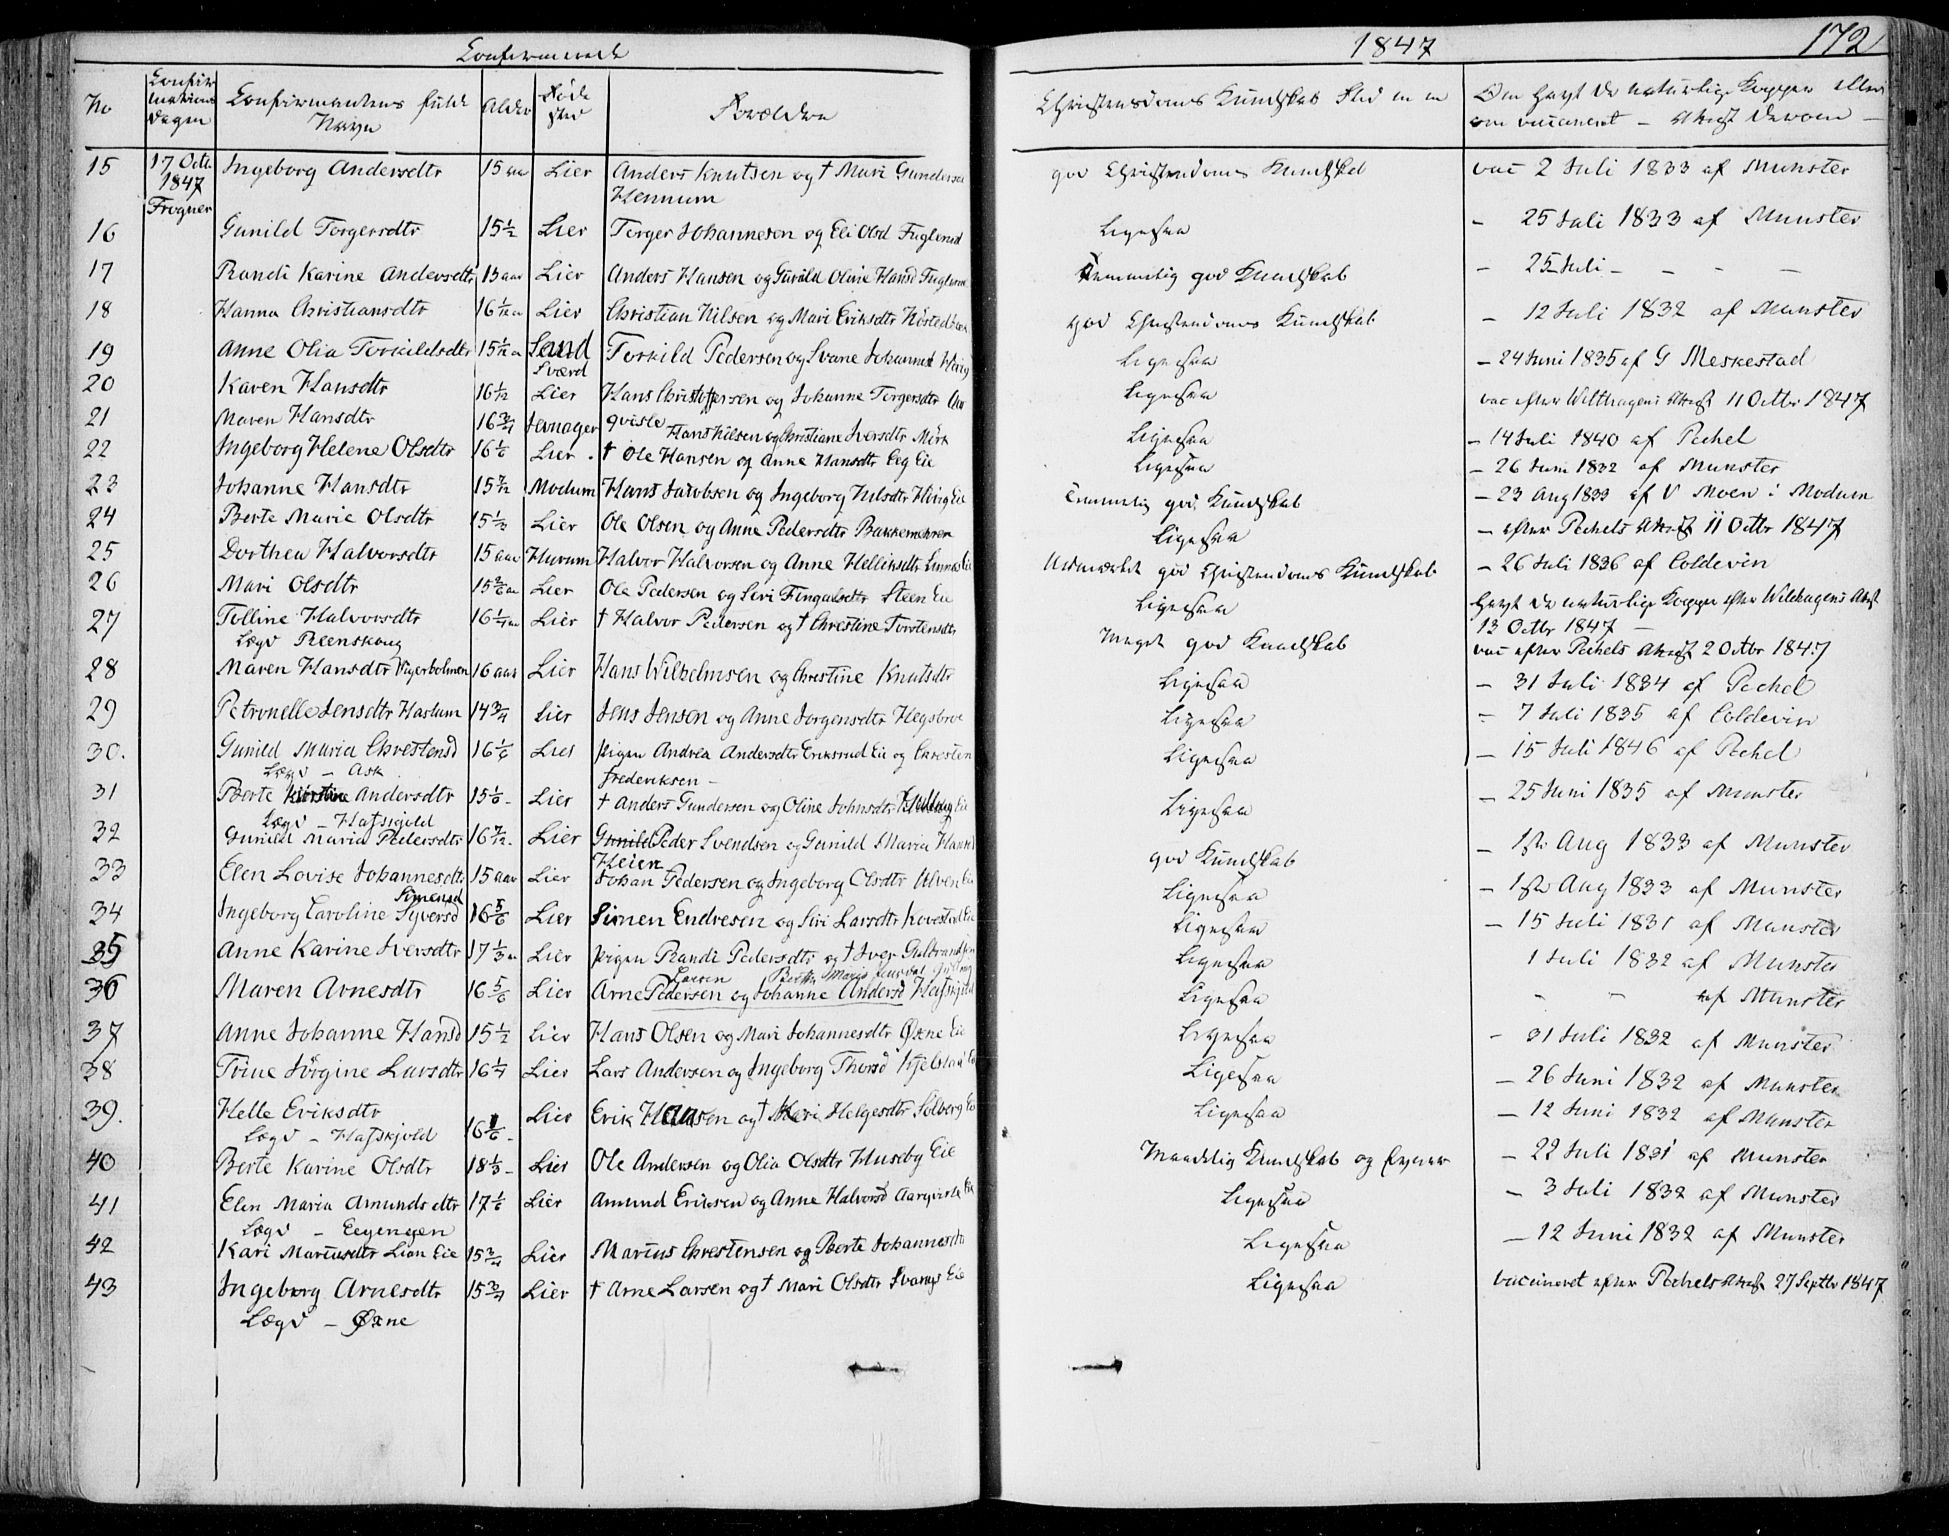 Confirmerede
1847
172
No
Confir
mations
dagen
Confirmantens fulde
Navn
Alder
Føde
sted
Forældre
Christendoms Kundskab Flid m m
Om havt de naturlige Kopper eller
om vaccineret — Attest derom —
15 17 Octr Ingeborg Andersdtr 15 aar Lier Anders Knutsen og † Mari Gundersen god Christendoms Kundskab vac 2 Juli 1833 af Munster
1847 Hennum
Frogner
16 Gunild Torgersdtr 15 1/2 Lier Torger Johannesen og Eli Olsd Fuglerud Ligesaa — 25 Juli 1833 af Munster
17 Randi Karine Andersdtr 15 aar Lier Anders Hansen og Gunild Oline Hansd Temmelig god Kundskab — 25 Juli — — — —
18 Hanna Christiansdtr 16 Lier Christian Nilsen og Mari Eriksdtr god Christendoms Kundskab — 12 Juli 1832 af Munster
19 Anne Olia Torkildsdtr 15 Sand Torkild Pedersen og Svane Johannesd Ligesaa — 24 Juni 1835 af G Meskestad
Sværd
20 Karen Hansdtr 16 1/2 Lier Hans Christoffersen og Johanne Torgersdtr Aar Ligesaa vac efter Wilthagens Attest 11 Octbr 1847
qvisle
21 Maren Hansdtr 16 3/4 Jevnager Hans Nilsen og Christiane Iversdtr Mörk Ligesaa — 14 Juli 1840 af Pechel
22 Ingeborg Helene Olsdtr 16 Lier . † Ole Hansen og Anne Hansdtr Eeg Eie Ligesaa — 26 Juni 1832 af Munster
23 Johanne Hansdtr 15 Modum Hans Jacobsen og Ingeborg Nilsdtr Eie Temmelig god Kundskab — 23 Aug 1833 af V Moen i Modum
24 Berte Marie Olsdtr 15 1/3 Lier Ole Olsen og Anne Pedersdtr Ligesaa — efter Pechels Attest 11 Octbr 1847
25 Dorthea Halvorsdtr 15 aar Hurum Halvor Halvorsen og Anne Helliksdtr Udmærket god Christendoms Kundskab — 26 Juli 1836 af Coldevin
26 Mari Olsdtr 15 Lier Ole Pedersen og Siri Fingalsdtr Steen Eie Ligesaa havt de naturlige Kopper efter Wilthagens Attest
13 Octbr 1847 —
27 Tolline Halvorsdtr 16 Lier † Halvor Pedersen og † Christine Torstensdtr Meget god Kundskab vac efter Pechels Attest 2 Octbr 1847
Lægd Reenskoug
28 Maren Hansdtr 16 aar Lier Hans Wilhelmsen og Christine Knutsdtr Ligesaa — 31 Juli 1834 af Pechel
29 Petronelle Jensdtr Haslum 14 3/4 Lier Jens Jensen og Anne Jorgensdtr Hegsbroe Ligesaa — 7 Juli 1835 af Coldevin
30. Gunild Maria Christensd 16 1/6 Lier Pigen Andrea Andersdtr Eriksrud Eie og Christen Ligesaa — 15 Juli 1846 af Pechel
Lægd — Ask frederiksen —
31 Berte Kirstine Andersdtr 15 1/6 — Lier † Anders Gundersen og Oline Johnsdtr Eie Ligesaa — 25 Juni 1835 af Munster
Lægd — Hafskjold
32 Gunild Maria Pedersdtr 16 7/12. Lier Gunild Peder Svendsen og Gunild Maria Hansd god Kundskab — 1ste Aug 1833 af Munster
Heien
33 Elen Lovise Johannesdtr 15 aar Lier Johan Pedersen og Ingeborg Olsdtr Ulven Eie Ligesaa — 1ste Aug 1833 af Munster
Simensd
34 Ingeborg Caroline Syversd 16 5/6 Lier Simen Endresen og Siri Larsdtr Kovestad Eie Ligesaa — 15 Juli 1831 af Munster
35 Anne Karine Iversdtr 17 1/3 Lier Pigen Randi Pedersdtr og † Iver Guldbrandsen Ligesaa 1 Juli 1832 af Munster
36 Maren Arnesdtr 16 5/6 Lier Arne Pedersen og Johanne Andersd Hafskjold Ligesaa — — af Munster
37 Anne Johanne Hansd 15 1/2 Lier Hans Olsen og Mari Johannesdtr Øxne Eie Ligesaa — 31 Juli 1832 af Munster
38 Trine Jörgine Larsdtr 16 Lier Lars Andersen og Ingeborg Thorsd Ligesaa — 26 Juni 1832 af Munster
39. Helle Eriksdtr 16 1/6 — Lier Erik Hansen og † Kari Helgesdtr Solberg Eie Ligesaa — 12 Juni 1832 af Munster
Lægd — Hafskjold
40 Berte Karine Olsdtr 18 1/3 — Lier Ole Andersen og Olia Olsdtr Huseby Eie Maadelig Kundskab og Evner — 22 Juli 1831 af Munster
41 Elen Maria Amundsdtr 17 1/6 Lier Amund Eriksen og Anne Halvorsd Aarqvisle Eie Ligesaa — 3 Juli 1832 af Munster
Lægd — Eegengen
42 Kari Mariusdtr Lian Eie 15 3/4 Lier Marius Christensen og Berte Johannesdtr Ligesaa — 12 Juni 1832 af Munster
43 Ingeborg Arnesdtr 15 3/4 Lier † Arne Larsen og † Mari Olsdtr Svangs Eie Ligesaa vaccineret efter Pechels Attest 27 Septbr 1847
Lægd — Øxne